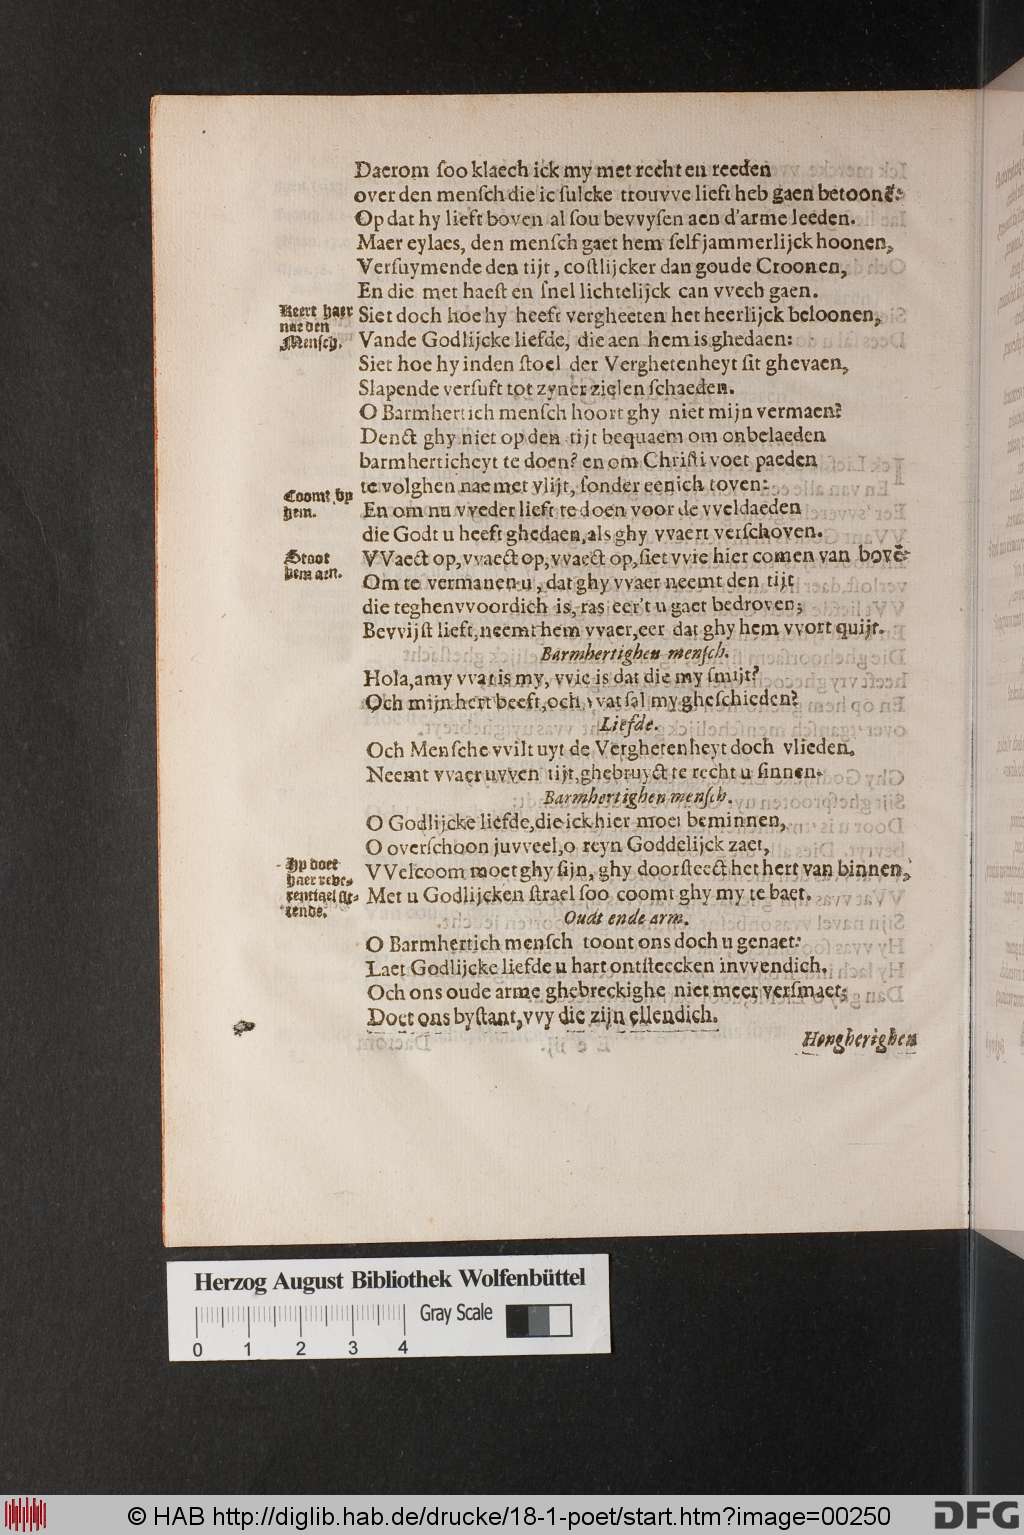 Daerom ſoo klaech ick my met recht en reeden
over den menſch die ic ſulcke trouvve lieft heb gaen betoonē:
Op dat hy lieft boven al ſou bevvyſen aen d'arme leeden.
Maer eylaes, den menſch gaet hem ſelf jammerlijck hoonen,
Verſuymende den tijt, coſtlijcker dan goude Croonen,
En die met haeſt en ſnel lichtelijck can vvech gaen.
Keert haer
nae den
Menſch.
Siet doch hoe hy heeft vergheeten het heerlijck beloonen,
Vande Godlijcke liefde, die aen hem is ghedaen:
Siet hoe hy inden ſtoel der Verghetenheyt ſit ghevaen,
Slapende verſuft tot zyner zielen ſchaeden.
O Barmhertich menſch hoort ghy niet mijn vermaen?
Denct ghy niet op den tijt bequaem om onbelaeden
barmherticheyt te doen? en om Chriſti voet paeden
te volghen nae met vlijt, ſonder eenich toven:
Coomt by
hem.
En om nu vveder lieft te doen voor de vveldaeden
die Godt u heeft ghedaen, als ghy vvaert verſchoven.
Stoot
hem aen.
VVaect op, vvaect op, vvaect op, ſiet vvie hier comen van bovē
Om te vermanen u, dat ghy vvaer neemt den tijt
die teghenvvoordich is, ras eer't u gaet bedroven;
Bevvijſt lieft, neemt hem vvaer, eer dat ghy hem vvort quijt.
Barmhertighen menſch.
Hola, amy vvat is my, vvie is dat die my ſmijt?
Och mijn hert beeft, och, vvat ſal my gheſchieden?
Liefde.
Och Menſche vvilt uyt de Verghetenheyt doch vlieden,
Neemt vvaer uvven tijt, ghebruyct te recht u ſinnen.
Barmhertighen menſch.
O Godlijcke liefde, die ick hier moet beminnen,
O overſchoon juvveel, o reyn Goddelijck zaet,
Hy doet
haer reve-
rentie
VVelcoom moet ghy ſijn, ghy doorſteect het hert van binnen,
Met u Godlijcken ſtrael ſoo coomt ghy my te baet.
Oudt ende arm.
O Barmhertich menſch toont ons doch u genaet:
Laet Godlijcke liefde u hart ontſteecken invvendich,
Och ons oude arme ghebreckighe niet meer verſmaet;
Doet ons byſtant, vvy die zijn ellendich.
Hongherighen
Herzog August Bibliothek Wolfenbüttel
Gray Scale
0 1 2 3 4
© HAB http://diglib.hab.de/drucke/18-1-poet/start.htm?image=00250
DFG